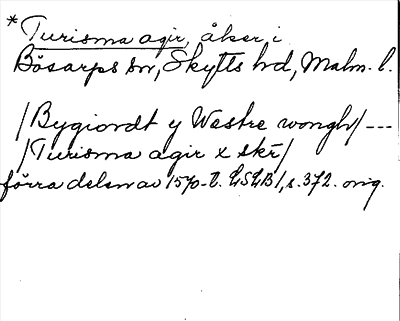 * Turisma agir, åker i
Bösarps sn, Skytts hd, Malm. l.
/Bygiordt y Westre wongh/ ---
/Turisma agir x skr/
förra delen av 1570-t. LSLB1, s. 372. orig.